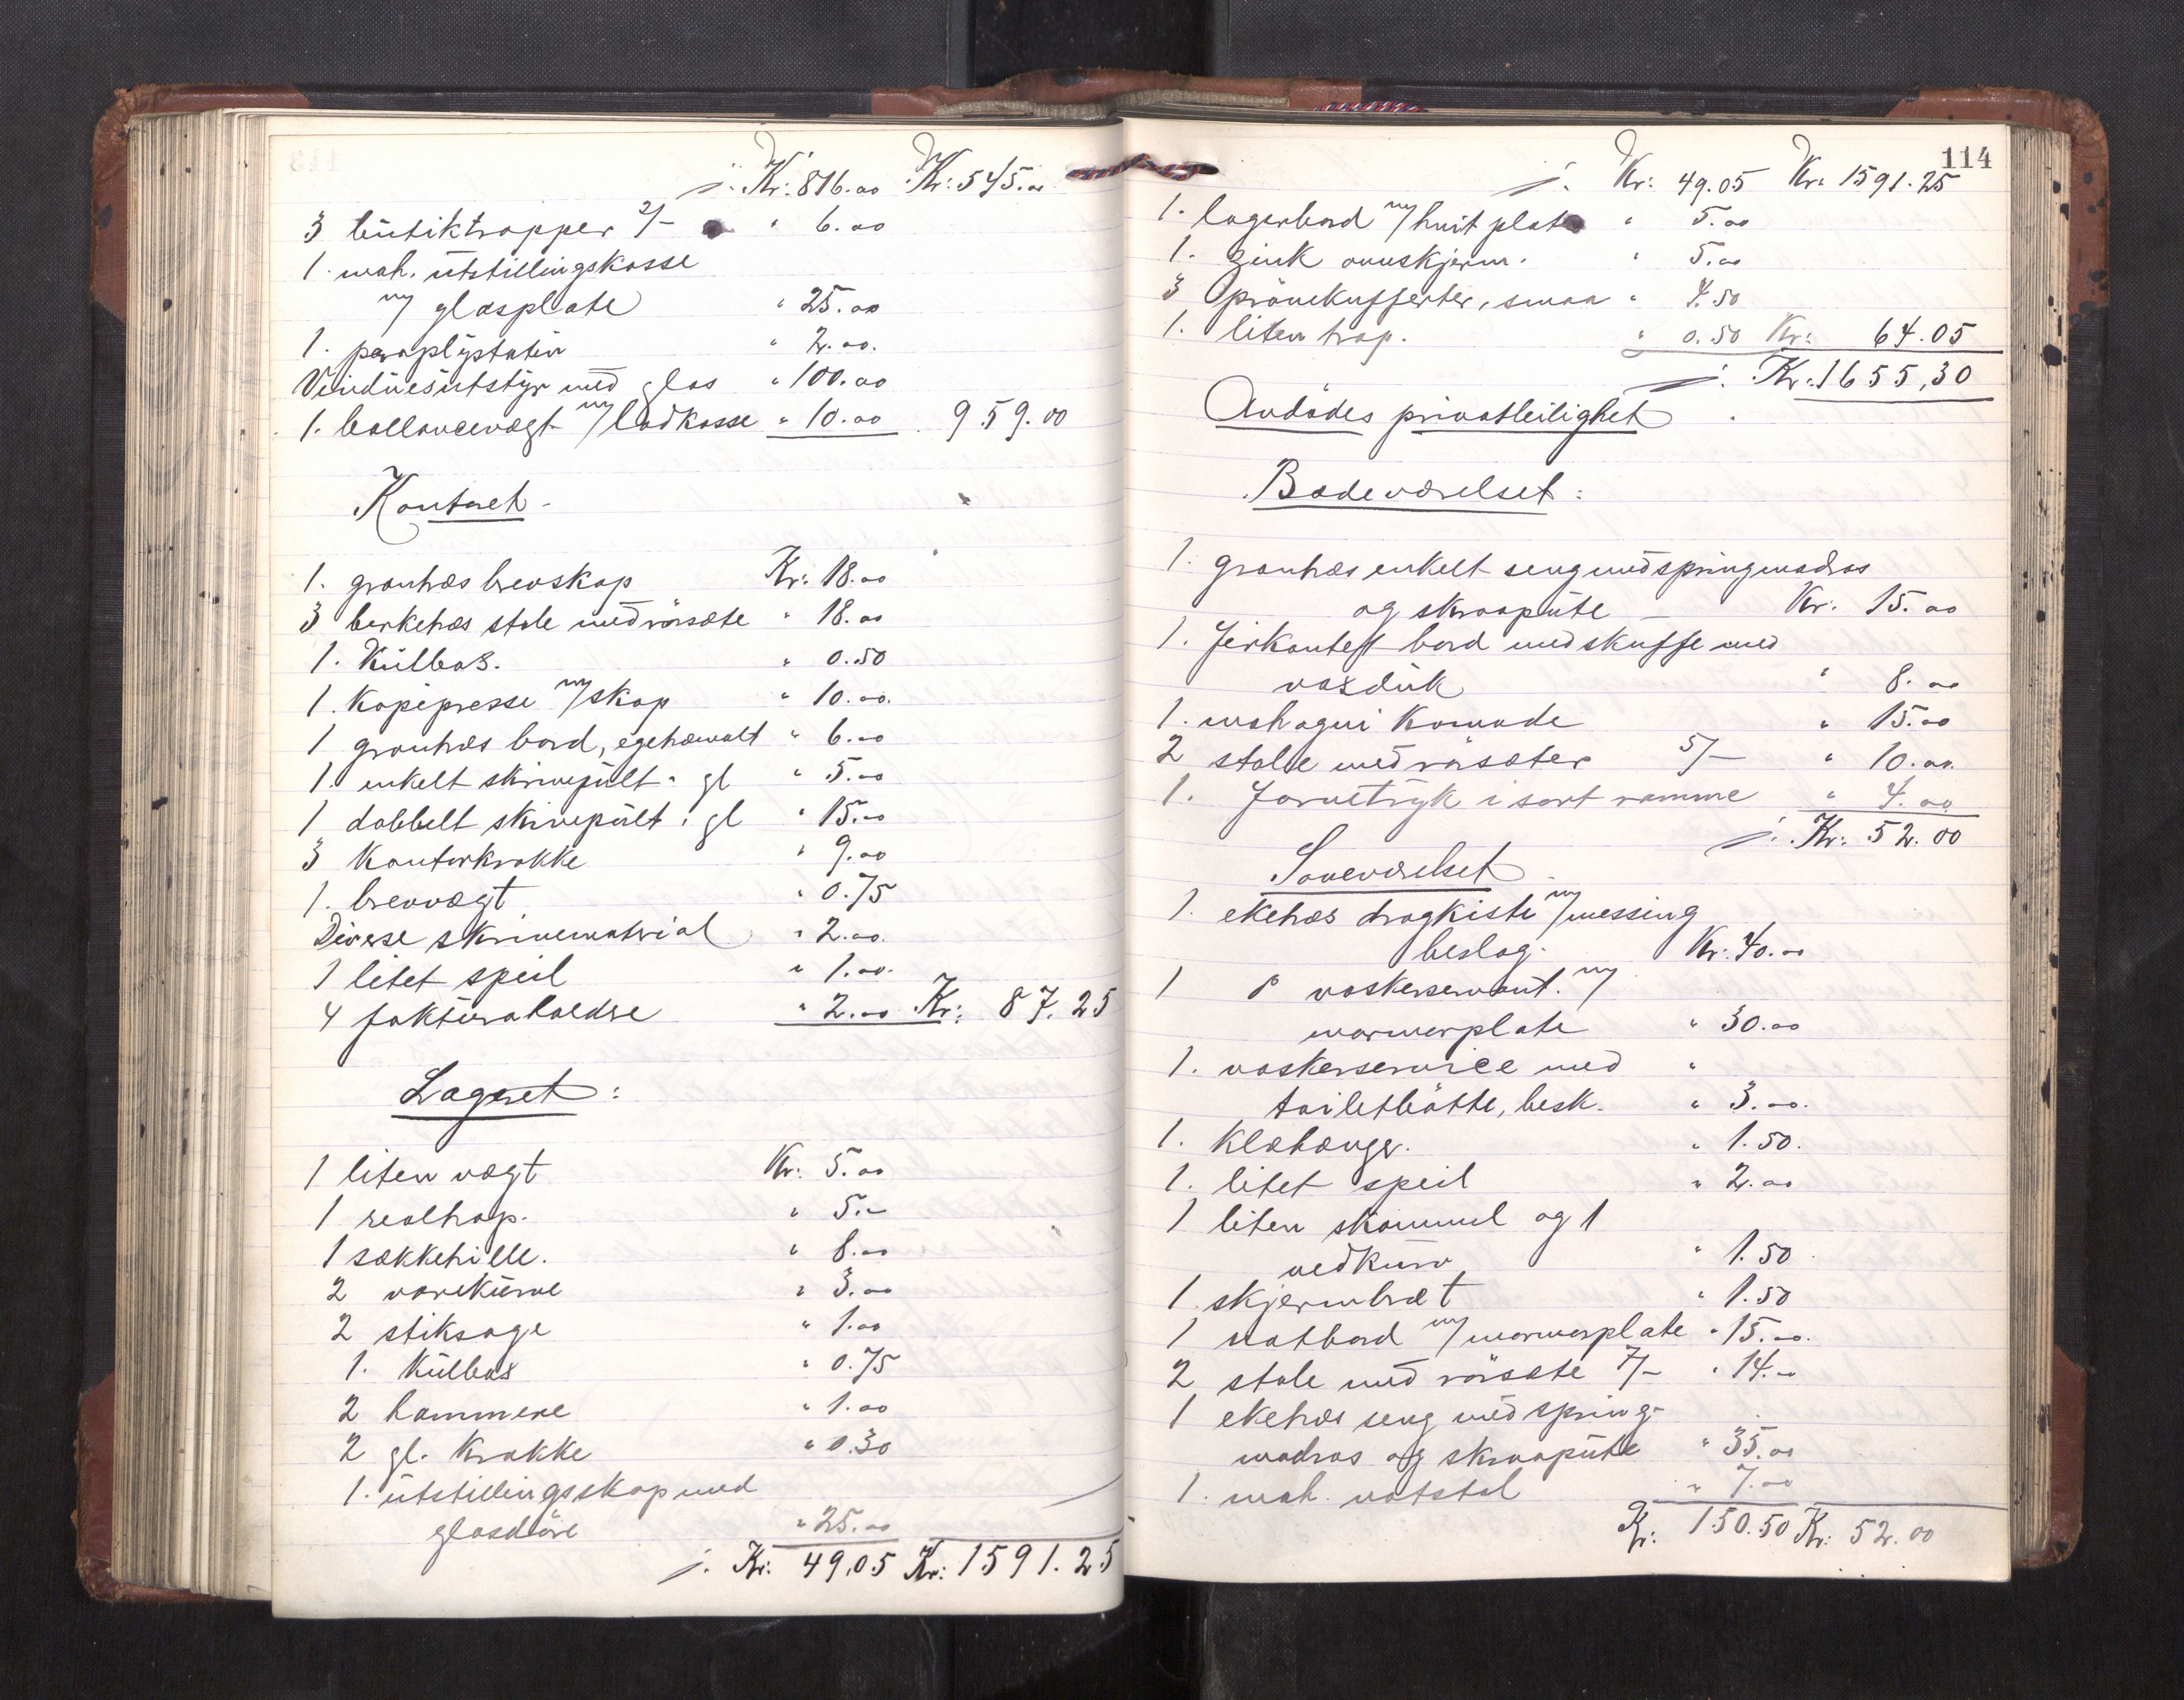 /. Kr: 816.00 Kr: 545.00
3 butiktrapper 2/- " 6.00
1. mah. utstillingskasse
m/ glasplate " 25.00
1. paraplystativ " 2.00.
Vinduesutstyr med glas " 100.00
1. ballancevægt m/ lodkasse " 10.00 959.00
Kontoret -
1. grantræs brevskap Kr: 18.00
3 berketræs stole med rørsæte " 18.00
1. Kulboks. " 0.50
1. Kopipresse m/skap " 10.00.
1 grantræs bord, egetræmalt " 6.00
1. enkelt skrivepult. gl " 5.00
1 dobbelt skrivepult. gl " 15.00
3 Kontorkrakke " 9.00
1. brevvægt " 0.75
Diverse skrivematrial " 2.00.
1 litet speil " 1.00.
4 fakturaholdre " 2.00 Kr: 87.25
Lageret:
1 liten vægt Kr: 5.00
1 realtrap. " 5.-
1 sækketrille. " 8.00
2 varekurve " 3.00
2 stiksage " 1.00
1. Kulboks " 0.75
2 hammere " 1.00
2 gl. krakke " 0.30
1. utstillingsskap med
glasdøre " 25.00
/. Kr: 49.05 Kr: 1591.25
114
/. Kr: 49.05 Kr: 1591.25
1. lagerbord m/ hvit plate " 5.00
1. zink ovnskjerm. " 5.00
3 prøvekufferter, smaa " 4.50
1. liten trap. " 0.50 Kr: 64.05
/. Kr: 1655,30
Avdødes privatleilighet.
Badeværelset:
1. grantræs enkelt seng med springmadras
og skraapute Kr: 15.00
1. firkantet bord med skuffe med
voxduk " 8.00
1. mahogni Komode " 15.00
2 stole med rørsæter 5/- " 10.00.
1. farvetryk i sort ramme " 4.00
/. Kr: 52.00
Soveværelset
1. eketræs dragkiste m/messing
beslag. Kr: 40.00
1 " vaskeservant. m/
marmorplate " 30.00
1. vaskeservice med "
toiletbøtte, besk. " 3.00.
1. Klæhænger. " 1.50.
1. litet speil " 2.00
1 liten skammel og 1
vedkurv " 1.50
1. skjermbræt " 1.50
1 natbord m/ marmorplate " 15.00.
2 stole med rørsæte 7/- " 14.00
1 eketræs seng med spring-
madras og skraapute " 35.00
1. mah. natstol " 7.00
Kr: 150.50 Kr: 52.00